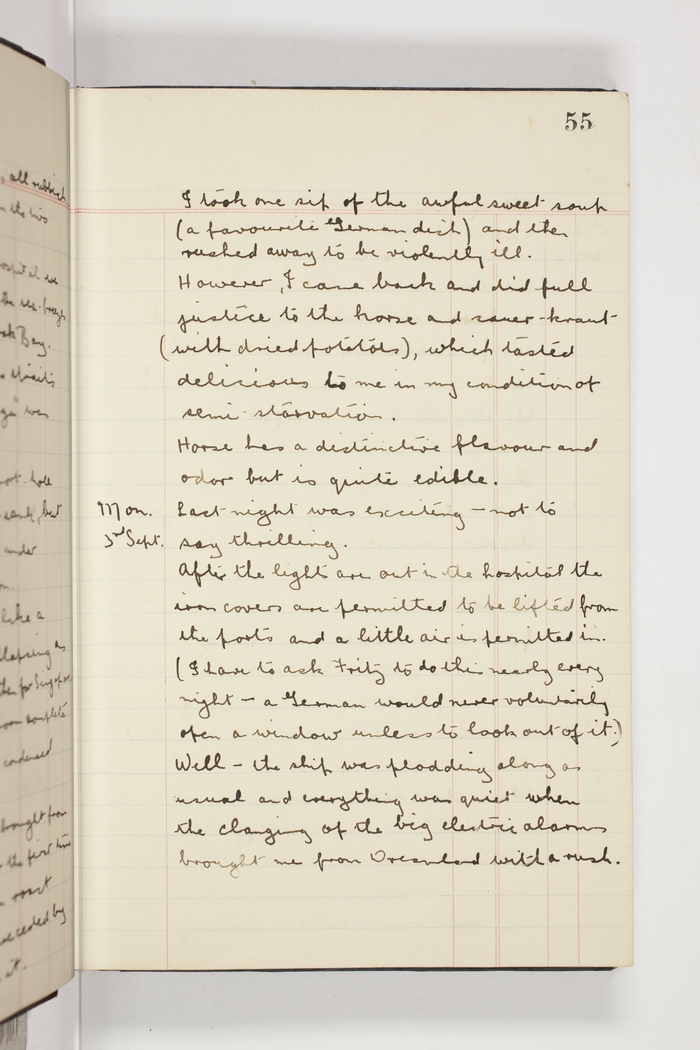 all rubbish
in the two
hospital we
the sea-breeze
Bay.
was
port-hole
sank, but
under
like a
collapsing as
complete
condensed
brought from
the first time
roast
preceded by
it.
55
I took one sip of the awful sweet soup
(a favourite German dish) and then
rushed away to be violently ill.
However, I came back and did full
justice to the horse and sauer-kraut
(with dried potatoes), which tasted
delicious to me in my condition of
semi-starvation.
Horse has a distinctive flavour and
odor but is quite edible.
Mon. Last night was exciting – not to
3rd Sept. say thrilling.
After the lights are out in the hospital the
iron covers are permitted to be lifted from
the ports and a little air is permitted in.
(I have to ask Fritz to do this nearly every
night – a German would never voluntarily
open a window unless to look out of it.)
Well – the ship was plodding along as
usual and everything was quiet when
the clanging of the big electric alarms
brought me from Dreamland with a rush.